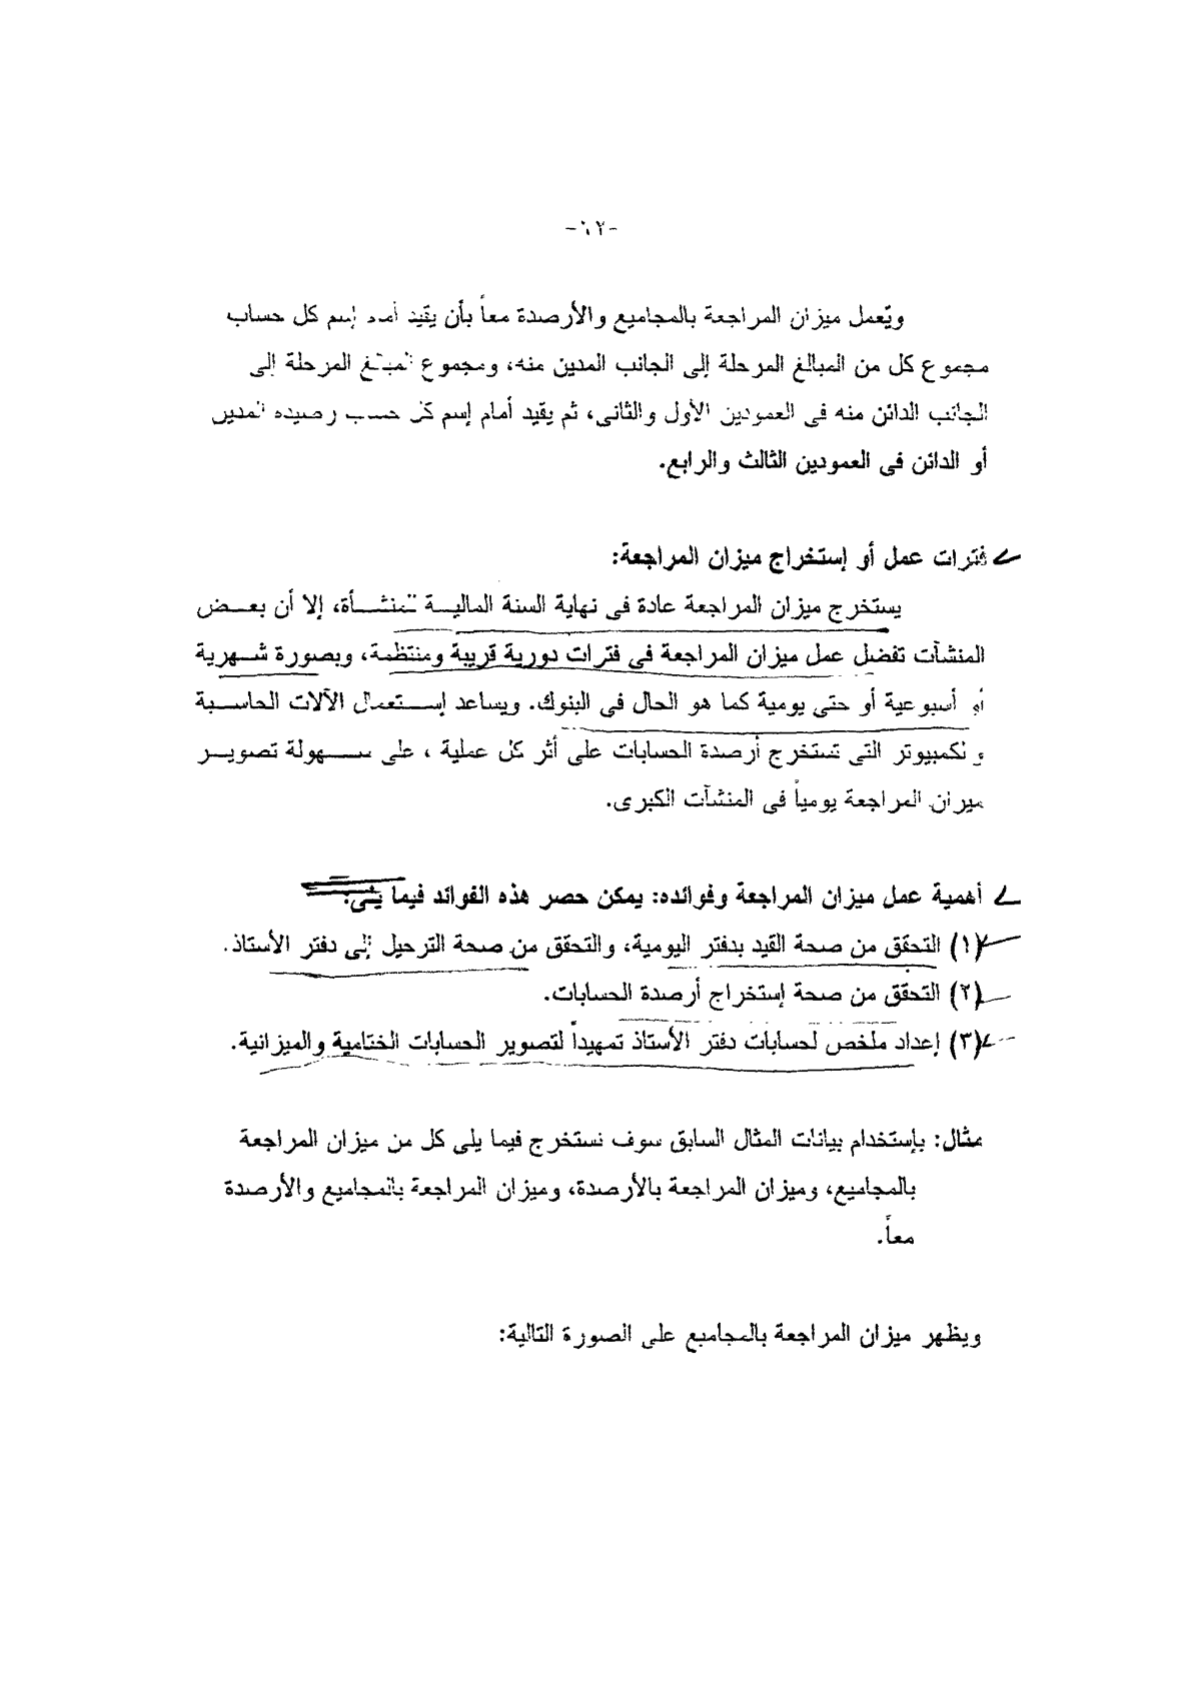 ويُعمل ميزان المراجعة بالمجاميع والأرصدة معاً بأن يقيد أمام إسم كل حساب
مجموع كل من المبالغ المرحلة إلى الجانب المدين منه، ومجموع المبالغ المرحلة إلى
الجانب الدائن منه فى العمودين الأول والثانى، ثم يقيد أمام إسم كل حساب رصيده المدين
أو الدائن فى العمودين الثالث والرابع.
فترات عمل أو إستخراج ميزان المراجعة:
يستخرج ميزان المراجعة عادة فى نهاية السنة المالية للمنشأة، إلا أن بعض
المنشآت تفضل عمل ميزان المراجعة فى فترات دورية قريبة ومنتظمة، وبصورة شهرية
أو أسبوعية أو حتى يومية كما هو الحال فى البنوك. ويساعد إستعمال الآلات الحاسبة
والكمبيوتر التى تستخرج أرصدة الحسابات على أثر كل عملية ، على سهولة تصوير
ميزان المراجعة يومياً فى المنشآت الكبرى.
أهمية عمل ميزان المراجعة وفوائده: يمكن حصر هذه الفوائد فيما يلى:
(١) التحقق من صحة القيد بدفتر اليومية، والتحقق من صحة الترحيل إلى دفتر الأستاذ.
(٢) التحقق من صحة إستخراج أرصدة الحسابات.
(٣) إعداد ملخص لحسابات دفتر الأستاذ تمهيداً لتصوير الحسابات الختامية والميزانية.
مثال: بإستخدام بيانات المثال السابق سوف نستخرج فيما يلى كل من ميزان المراجعة
بالمجاميع، وميزان المراجعة بالأرصدة، وميزان المراجعة بالمجاميع والأرصدة
معاً.
ويظهر ميزان المراجعة بالمجاميع على الصورة التالية: